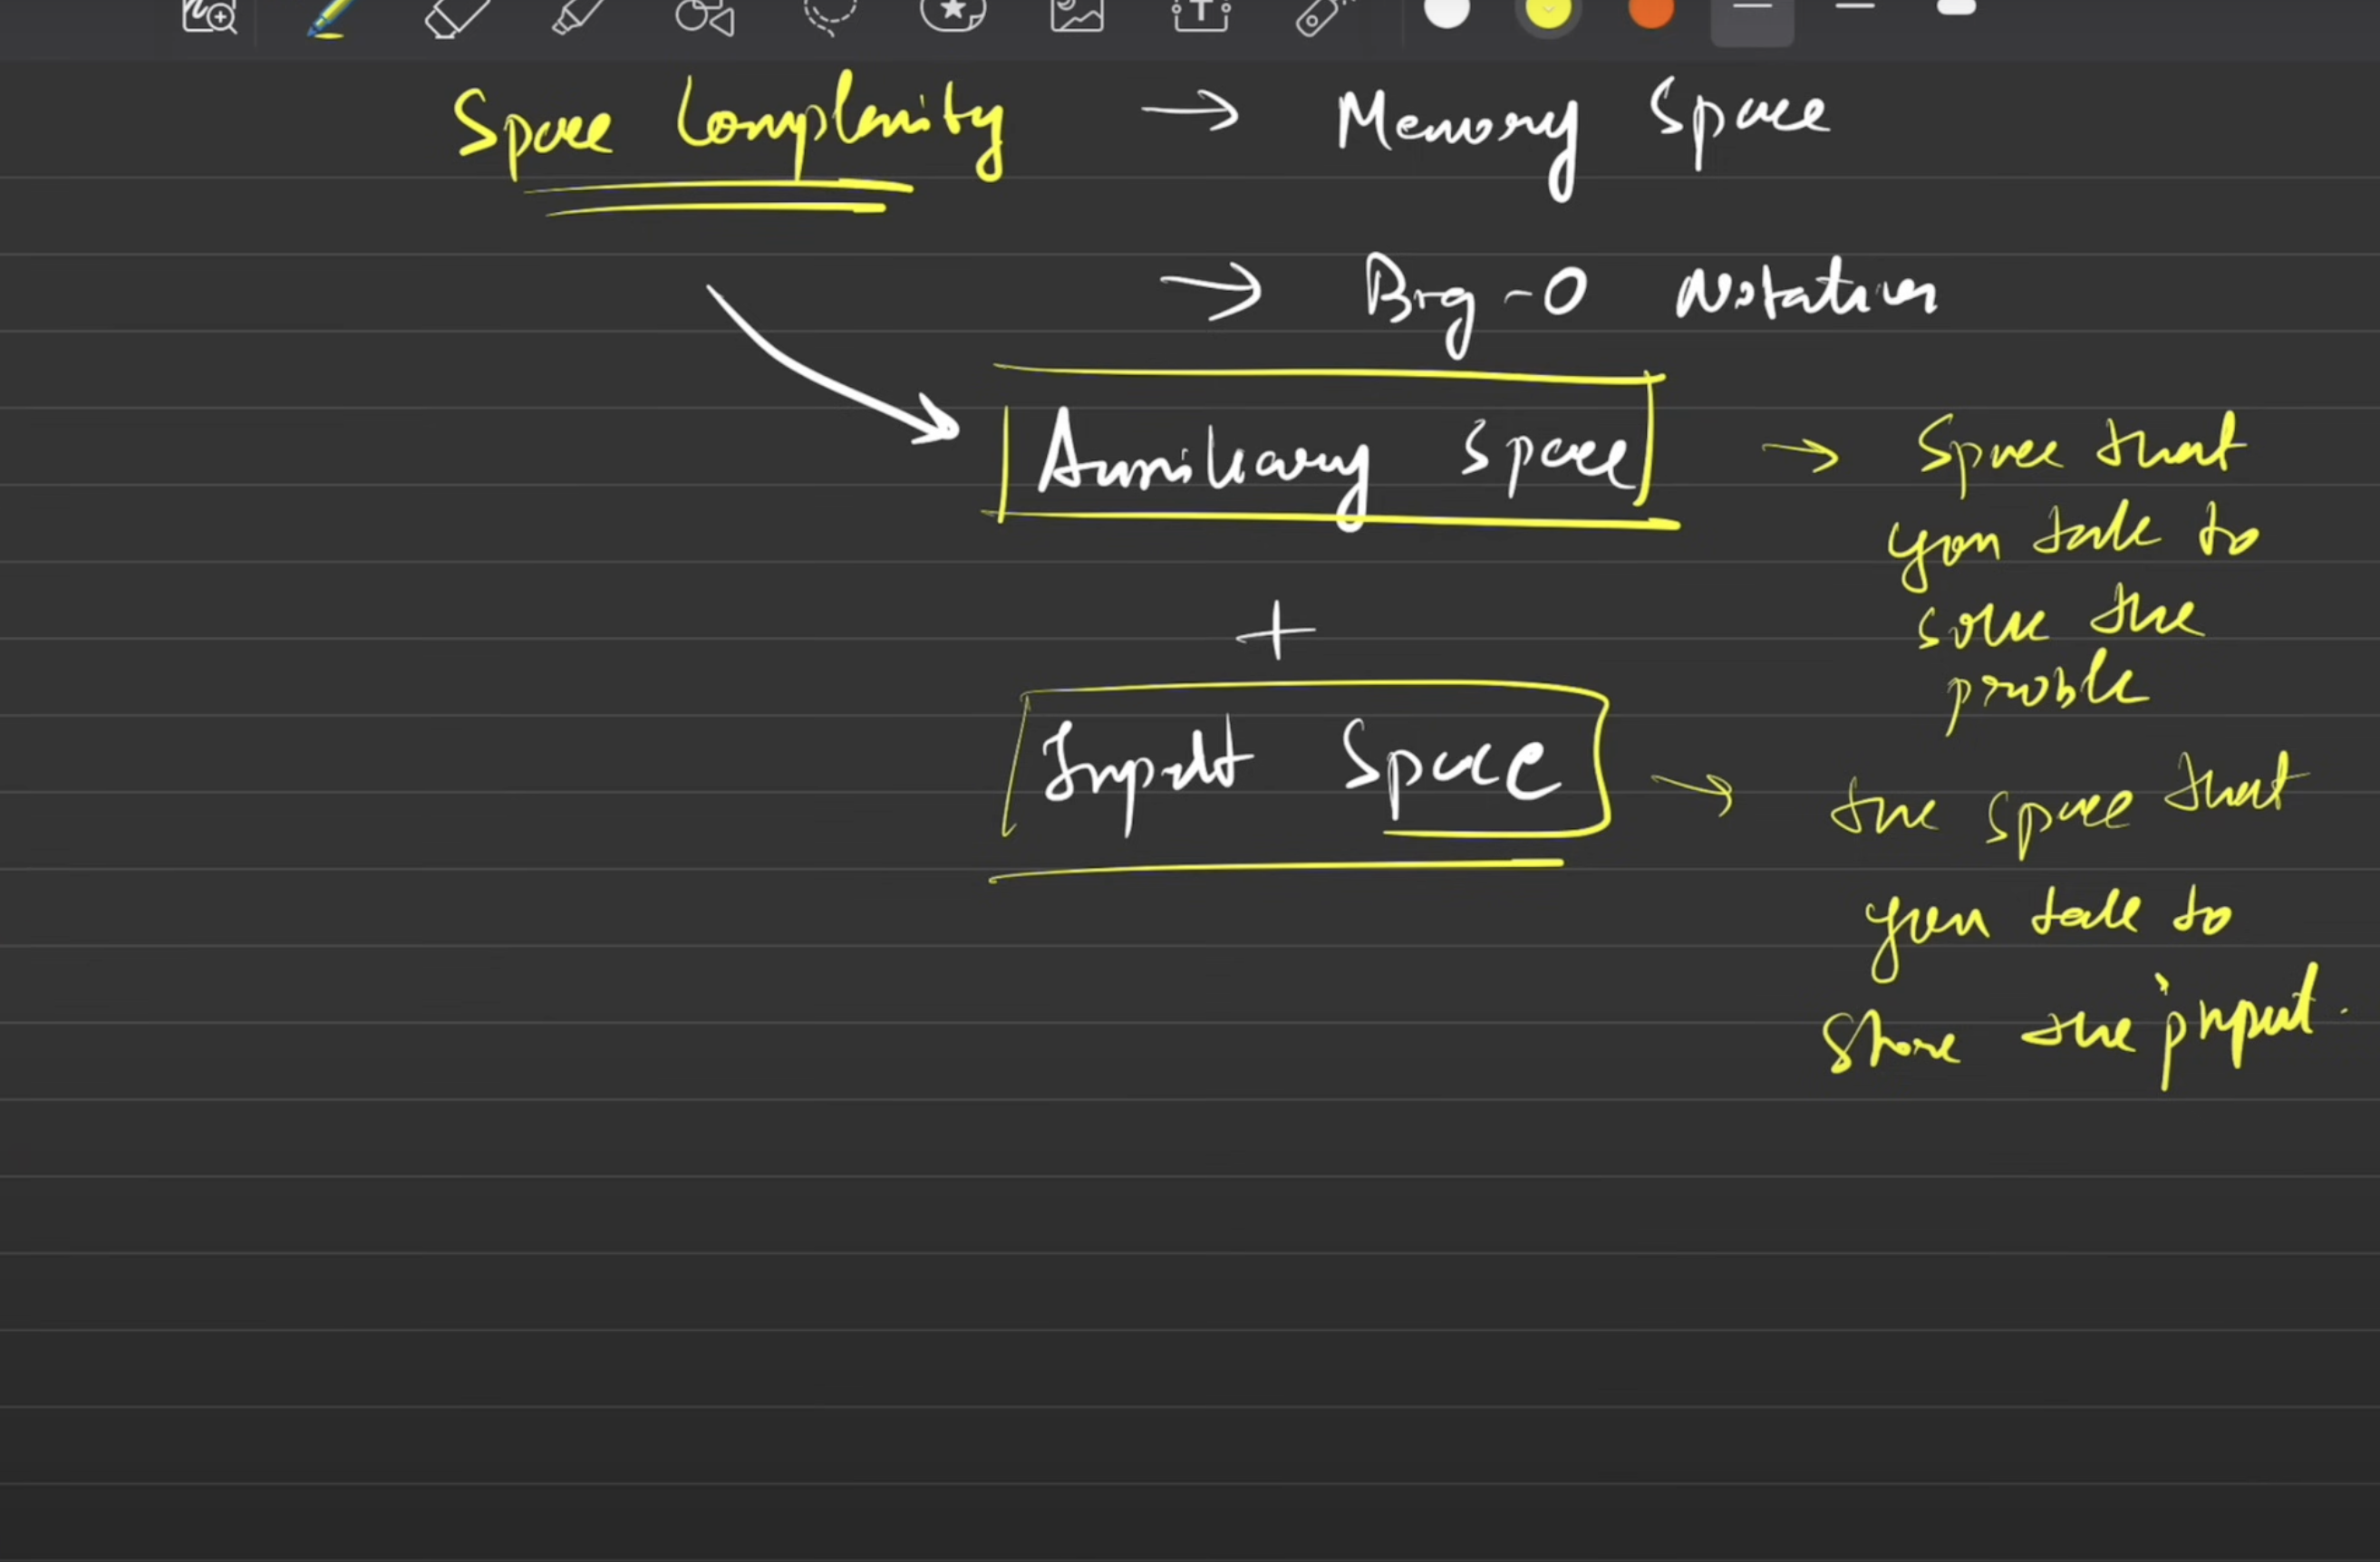 Space Complexity → Memory Space
→ Big-O Notation
Auxiliary Space → Space that
you take to
solve the
proble
+
Input Space → the space that
you take to
store the input.